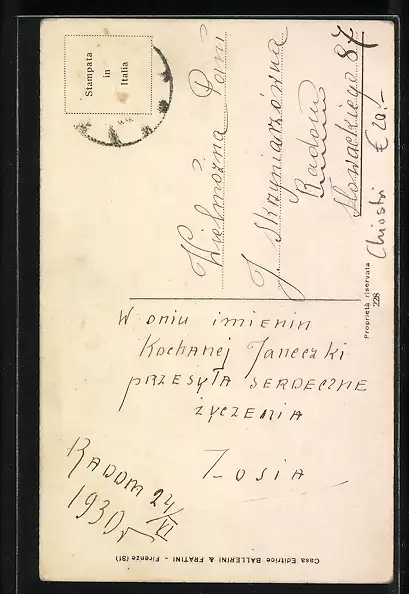 Stampata
in
Italia
Wielmożna Pani
J. Skrzyniarzówna
Radom
Słowackiego 87
Chiostri € 20.-
Proprietà riservata
228
W dniu imienin
Kochanej Janeczki
przesyła serdeczne
życzenia
Zosia
Radom 24/VI
1930 r
Casa Editrice BALLERINI & FRATINI - Firenze (31)